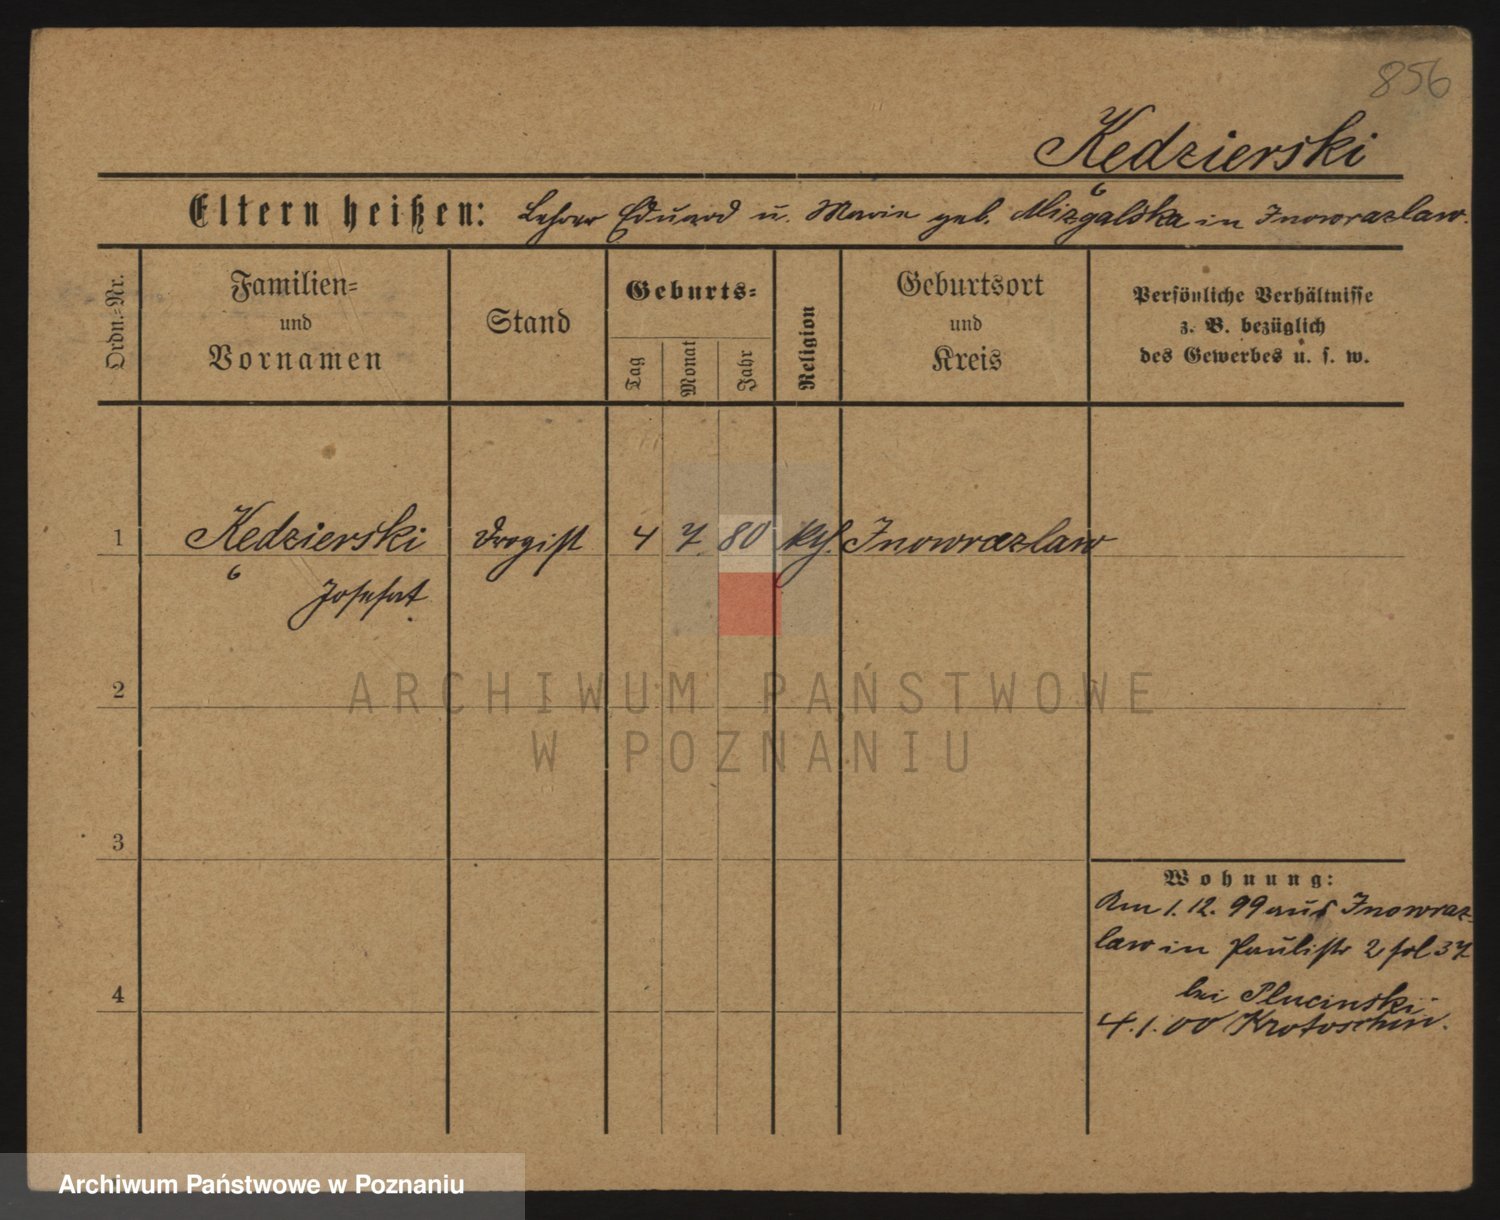 856
Kędzierski
Eltern heißen: Lehrer Eduard u. Marie geb. Mizgalska in Inowrazlaw.
Ordn.-Nr.
Familien- und Vornamen
Stand
Geburts-
Tag
Monat
Jahr
Religion
Geburtsort und Kreis
Persönliche Verhältnisse
z. B. bezüglich
des Gewerbes u. s. w.
1 Kędzierski Drogist 4 7. 80 kth. Inowrazlaw
Josefat.
2
ARCHIWUM PAŃSTWOWE
W POZNANIU
3
Wohnung:
Am 1. 12. 99 aus Inowraz-
law in Paulistr 2 fol 37
4
bei Plucinski
4.1.00 Krotoschin.
Archiwum Państwowe w Poznaniu